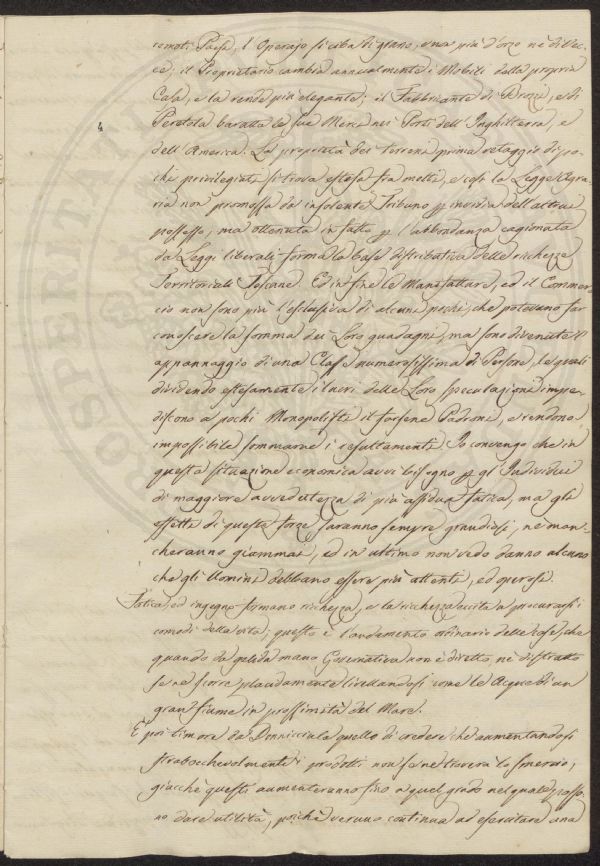 remoti Paesi, l'Operajo si ciba di grano, e non più d'orzo nè di Vec-
ce; il Proprietario cambia annualmente i Mobili dalla propria
Casa, e la rende più elegante; il Fabbricante di Brozzi, e di
Peretola baratta le sue Merci nei Porti dell'Inghilterra, e
4
dell'America. La proprietà dei terreni prima retaggio di po-
chi privilegiati si trova estesa fra molti, e così la Legge Agra-
ria non promossa da insolente Tribuno p invidia dell'altrui
possesso, ma ottenuta in fatto p l'abbondanza cagionata
da Leggi liberali forma la base distributiva delle ricchezze
Territoriali Toscane. Ed in fine le Manifatture, ed il Commer-
cio non sono più l'esclusiva di alcuni pochi, che potevano far
conoscere la somma dei Loro guadagni, ma sono divenute l'
appannaggio di una Classe numerosissima di Persone, le quali
dividendo estesamente i lucri delle Loro speculazioni impe-
discono a pochi Monopolisti il farsene Padroni, e rendono
impossibile sommarne i resultamenti. Io convengo che in
questa situazione economica avvi bisogno p gl'Individui
di maggiore avvedutezza di più assidua fatica, ma gli
effetti di queste forze saranno sempre grandiosi, ne man-
cheranno giammai, ed in ultimo non vedo danno alcuno
che gli Uomini debbano essere più attenti, ed operosi.
Fatica, ed ingegno formano ricchezza, e la ricchezza eccita a procurarsi i
comodi della vita; questo è l'andamento ordinario delle cose, che
quando da gelida mano Governativa non è diretto, nè distratto
se ne scorre placidamente livellandosi come le Acque di un
gran fiume in prossimità del Mare.
E poi timore da Donnicciula quello di credere che aumentandosi
strabocchevolmente i prodotti non se ne troverà lo smercio,
giacchè questi aumenteranno fino a quel grado nel quale posso-
no dare utilità, poichè veruno continua ad esercitare una